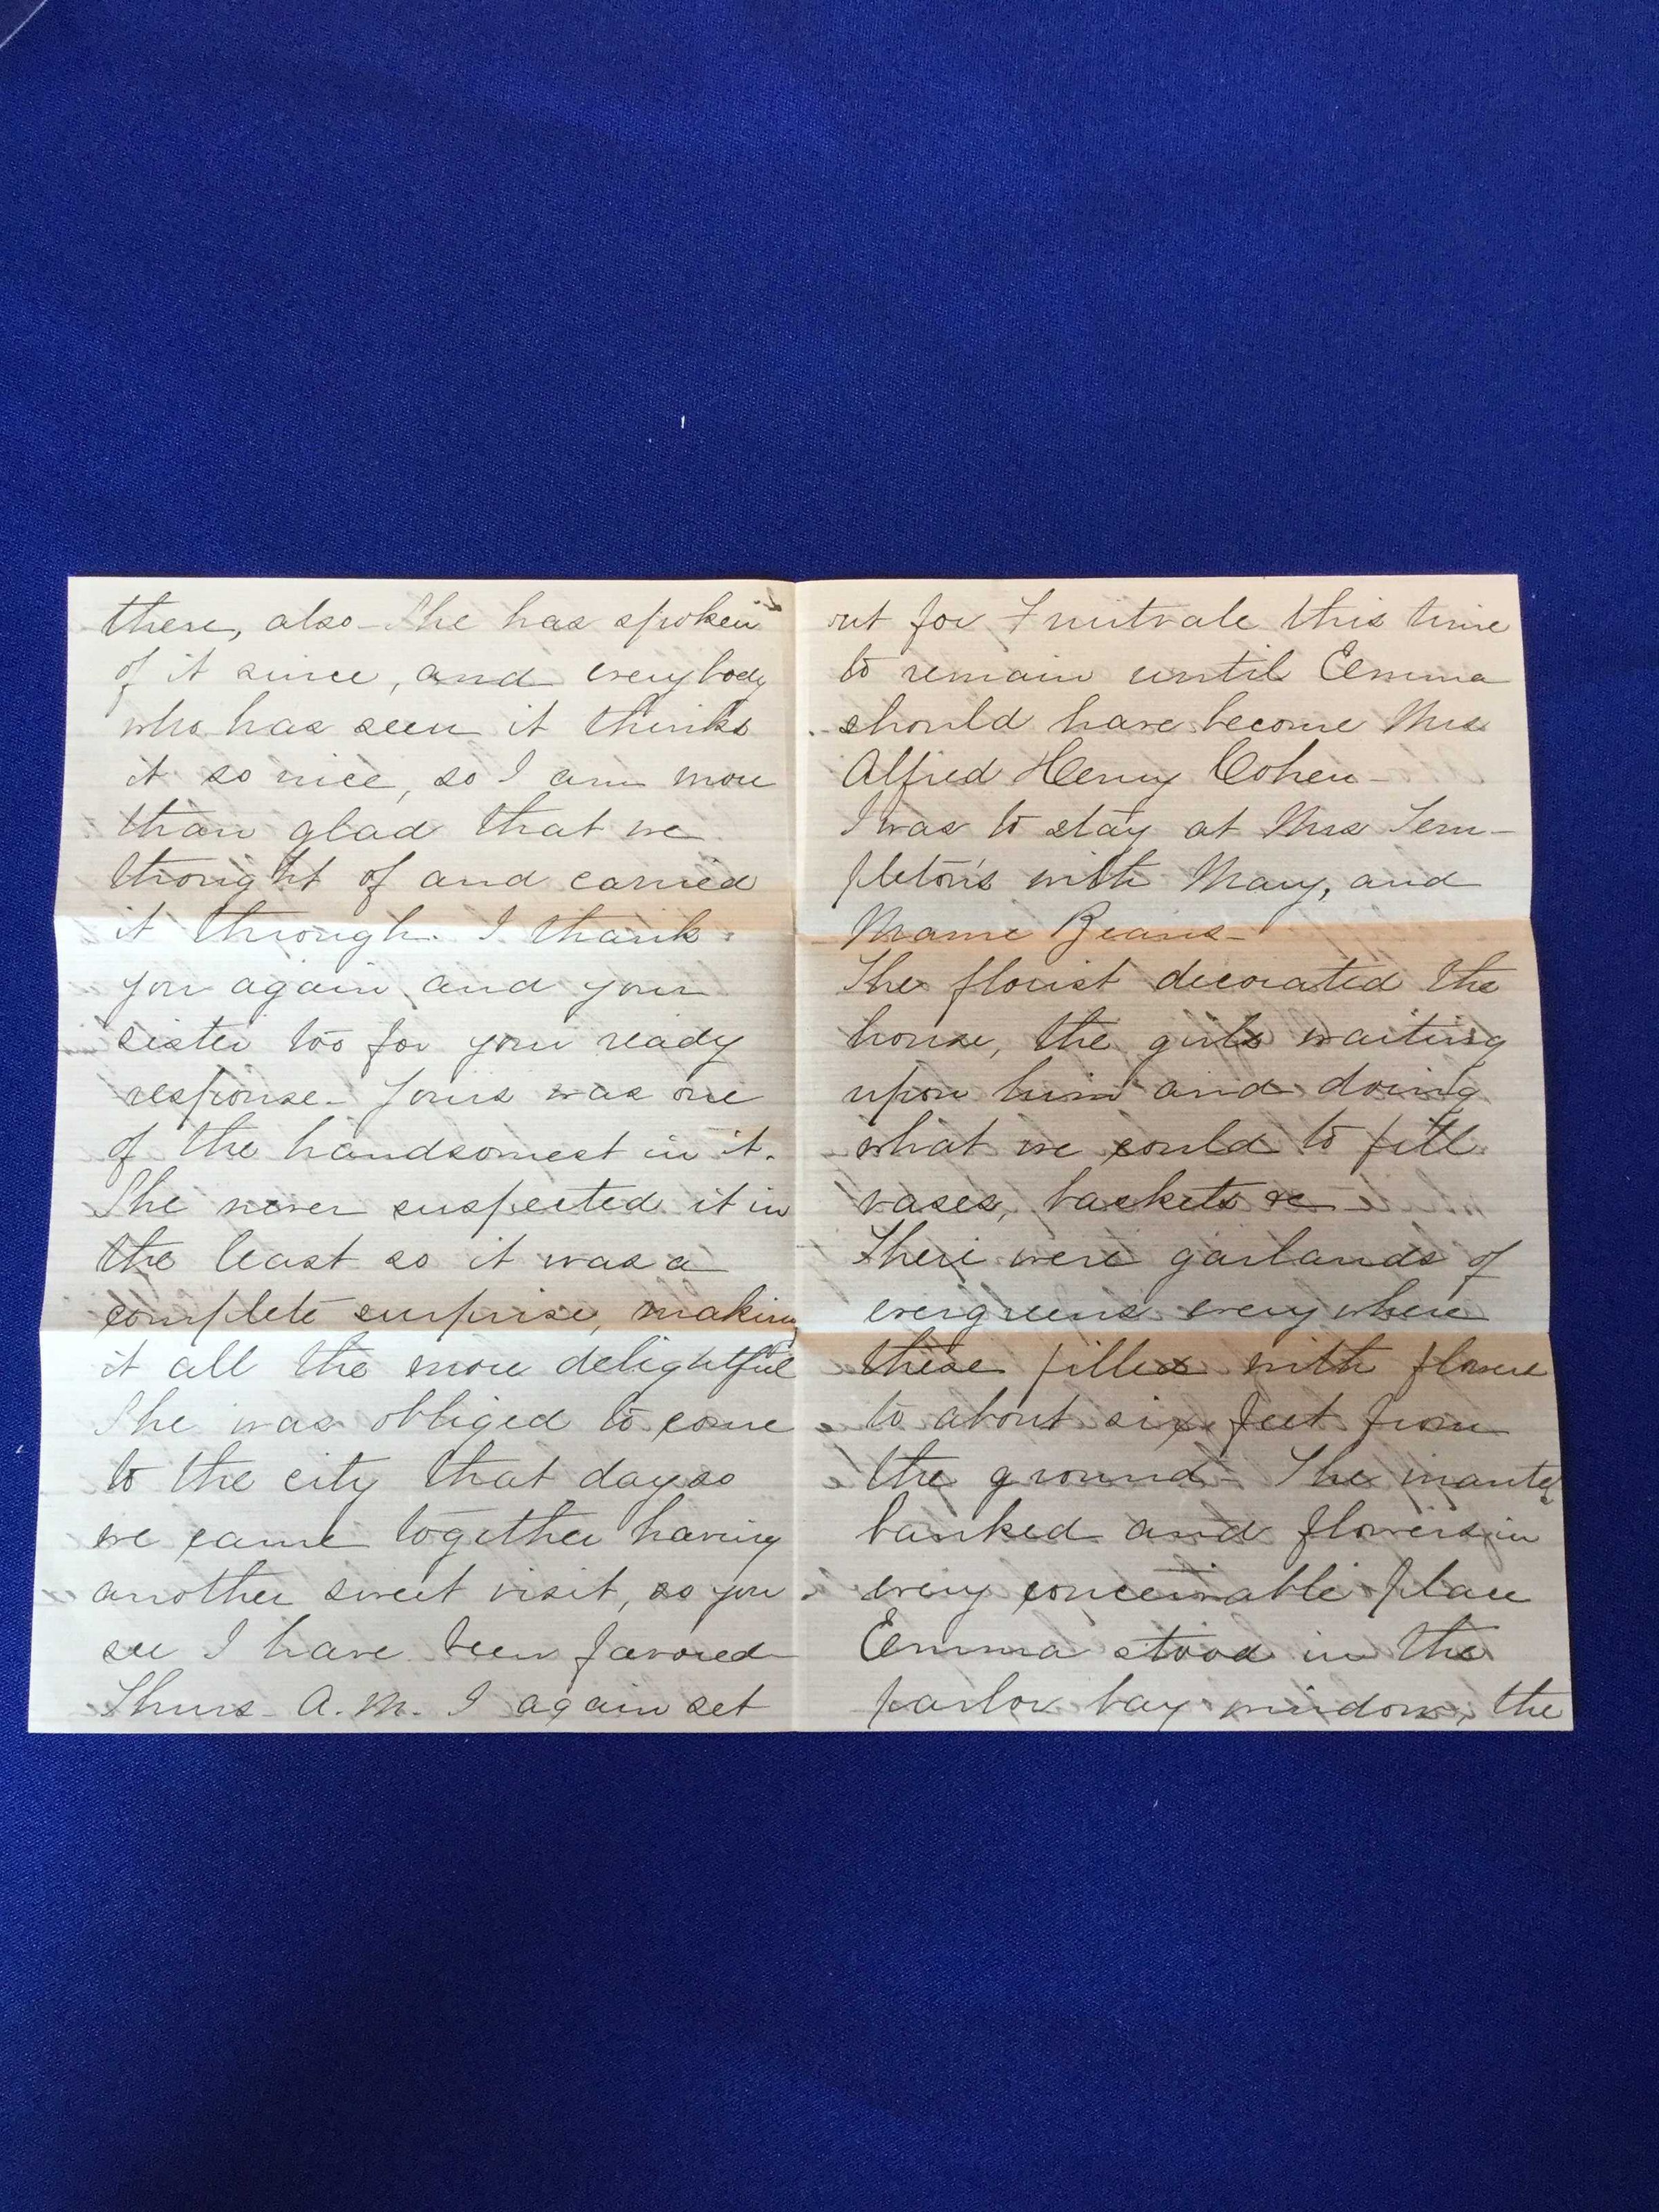 there, also - She has spoken
of it since, and everybody
who has seen it thinks
it so nice, so I am more
than glad that we
thought of and carried
it through. I thank
you again and your
sister too for your ready
response - Yours was one
of the handsomest in it.
She never suspected it in
the least so it was a
complete surprise, making
it all the more delightful
She was obliged to come
to the city that day so
we came together having
another sweet visit, so you
see I have been favored
Thurs. A.M. I again set
out for Fruitvale this time
to remain until Emma
should have become Mrs
Alfred Henry Cohen -
I was to stay at Mrs Tem-
pleton's with Mary, and
Mame Beans -
The florist decorated the
house, the girls waiting
upon him and doing
what we could to fill
vases, baskets &c -
There were garlands of
evergreens everywhere
these filled with flowers
to about six feet from
the ground - The mantel
banked and flowers in
every conceivable place
Emma stood in the
parlor bay window, the